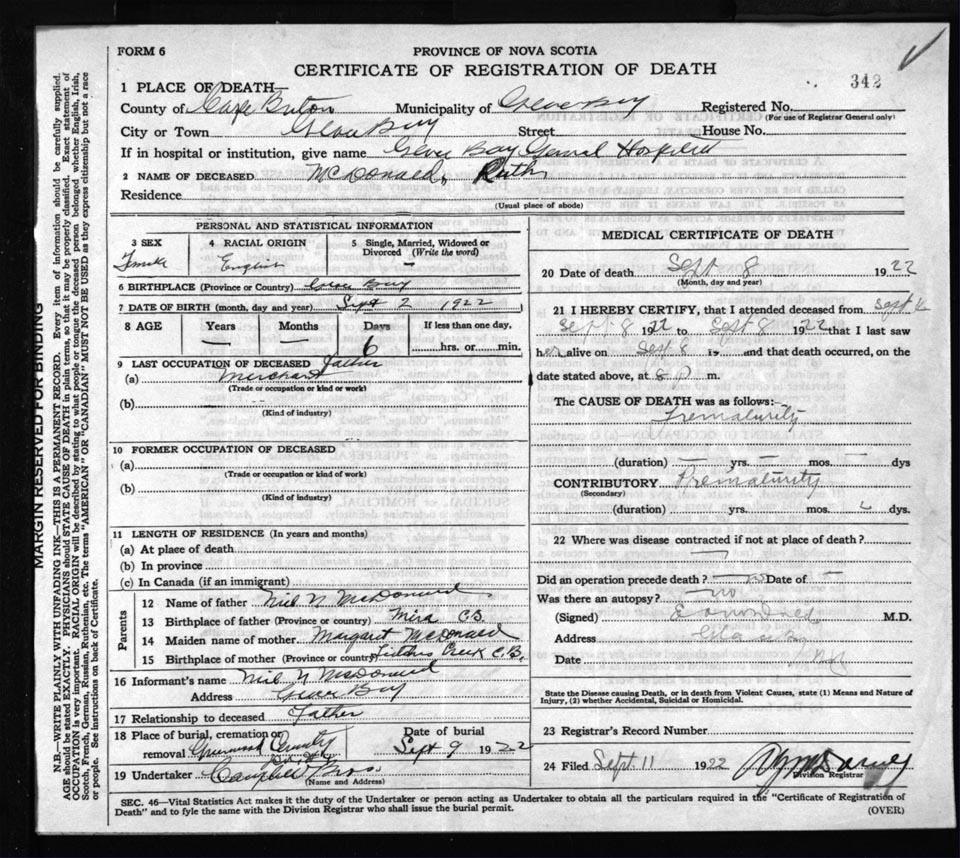 FORM 6
PROVINCE OF NOVA SCOTIA
CERTIFICATE OF REGISTRATION OF DEATH
342
1 PLACE OF DEATH
County of Cape Breton Municipality of Glace Bay Registered No.
(For use of Registrar General only)
City or Town Glace Bay Street House No.
If in hospital or institution, give name Glace Bay General Hospital
2 NAME OF DECEASED McDonald, Ruth
Residence
(Usual place of abode)
PERSONAL AND STATISTICAL INFORMATION
3 SEX Female
4 RACIAL ORIGIN English
5 Single, Married, Widowed or Divorced (Write the word) —
6 BIRTHPLACE (Province or Country) Glace Bay
7 DATE OF BIRTH (month, day and year) Sept 2 1922
8 AGE Years — Months — Days 6 If less than one day, hrs. or min.
9 LAST OCCUPATION OF DECEASED Father
(a) Merchant
(Trade or occupation or kind of work)
(b)
(Kind of industry)
10 FORMER OCCUPATION OF DECEASED
(a)
(Trade or occupation or kind of work)
(b)
(Kind of industry)
11 LENGTH OF RESIDENCE (In years and months)
(a) At place of death
(b) In province
(c) In Canada (if an immigrant)
Parents
12 Name of father Neil N McDonald
13 Birthplace of father (Province or country) Mira C.B.
14 Maiden name of mother Margaret McDonald
15 Birthplace of mother (Province or country) Creek C.B.
16 Informant's name Neil N McDonald
Address Glace Bay
17 Relationship to deceased Father
18 Place of burial, cremation or removal Greenwood Date of burial Sept 9 1922
19 Undertaker Campbell Bros
(Name and Address)
MEDICAL CERTIFICATE OF DEATH
20 Date of death Sept 8 1922
(Month, day and year)
21 I HEREBY CERTIFY, that I attended deceased from Sept
Sept 8 1922 to Sept 8 1922 that I last saw
her alive on Sep 8 19 and that death occurred, on the
date stated above, at 8 P m.
The CAUSE OF DEATH was as follows:—
Prematurity
(duration) — yrs. — mos. — dys
CONTRIBUTORY Prematurity
(Secondary)
(duration) yrs. mos. dys.
22 Where was disease contracted if not at place of death?
—
Did an operation precede death? no Date of —
Was there an autopsy? no
(Signed) M.D.
Address Glace Bay
Date
State the Disease causing Death, or in death from Violent Causes, state (1) Means and Nature of
Injury, (2) whether Accidental, Suicidal or Homicidal.
23 Registrar's Record Number
24 Filed Sept 11 1922
Division Registrar
SEC. 46—Vital Statistics Act makes it the duty of the Undertaker or person acting as Undertaker to obtain all the particulars required in the "Certificate of Registration of
Death" and to fyle the same with the Division Registrar who shall issue the burial permit.
(OVER)
MARGIN RESERVED FOR BINDING
N.B.—WRITE PLAINLY WITH UNFADING INK—THIS IS A PERMANENT RECORD. Every item of information should be carefully supplied.
AGE should be stated EXACTLY. PHYSICIANS should STATE CAUSE OF DEATH in plain terms, so that it may be properly classified. Exact statement of
OCCUPATION is very important. RACIAL ORIGIN will be described by stating to what people or tongue the deceased person belonged whether English, Irish,
Scotch, French, German, Russian, Ruthenian, etc. The terms "AMERICAN" or "CANADIAN" MUST NOT BE USED as they express citizenship but not a race
or people. See instructions on back of Certificate.